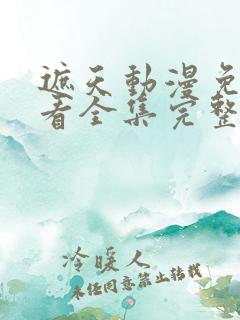 遮天動漫免
看全集完整
冷暖人
未任同意禁止转载